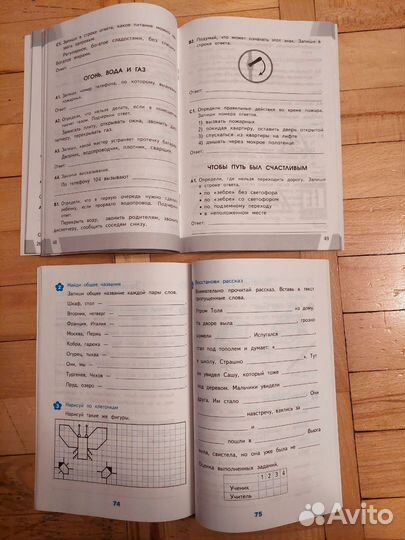 С1. Запиши в строке ответа, каков питания может
ма здоровым.
Регулярное, богатое сладостями, без
богатое жирами.
Ответ:
ОГОНЬ, ВОДА И ГАЗ
А1. Запиши номер телефона, по которому вызывают
пожарных.
Ответ:
А2. Определи, что нельзя делать, если в
пахнет газом. Подчеркни ответ.
Зажигать плиту, открывать окна, звонить
перекрыть газ.
А3. Запиши, какой мастер устраняет протечку
Дворник, водопроводчик, плотник, сварщик.
Ответ:
А4. Закончи высказывание.
По телефону 104 вызывают
В1. Определи, что в первую очередь нужно сделать
ребёнку, если прорвало водопровод. Подчеркни
Перекрыть воду, звонить родителям, звонить
диспетчеру, сообщить соседям снизу.
В2. Подумай, что может означать этот знак. Запиши в
строке ответа.
Ответ:
С1. Определи правильные действия во время пожара.
Запиши номера ответа.
1) вызвать пожарных
2) покидая квартиру, оставить дверь открытой
3) спускаться из квартиры на лифте
4) дышать через мокрое полотенце
Ответ:
ЧТОБЫ ПУТЬ БЫЛ СЧАСТЛИВЫМ
А1. Определи, где нельзя переходить дорогу. Запиши
в строке ответа.
• по «зебре» без светофора
• по «зебре» со светофором
• по подземному переходу
• в неположенном месте
Ответ:
49
2 Найди общее название
Запиши общее название каждой пары слов.
Шкаф, стол —
Вторник, четверг —
Франция, Италия —
Москва, Пермь —
Кобра, гадюка —
Огурец, тыква —
Они, мы —
Тургенев, Чехов —
Пруд, озеро —
3 Нарисуй по клеточкам
Нарисуй такие же фигуры.
74
Восстанови рассказ
Внимательно прочитай рассказ. Вставь в текст
пропущенные слова.
Утром Толя из дому.
На дворе выла , грозно
шумели . Испугался
стал под тополем и думает: «
в школу. Страшно ». Тут
он увидел Сашу, который тоже
под деревом. Мальчики увидели
друга. Им стало . Они
навстречу, взялись за
и
пошли в . Вьюга
выла, свистела, но она уже была не
Оценка выполненных заданий.
1 2 3 4
Ученик
Учитель
75
Avito